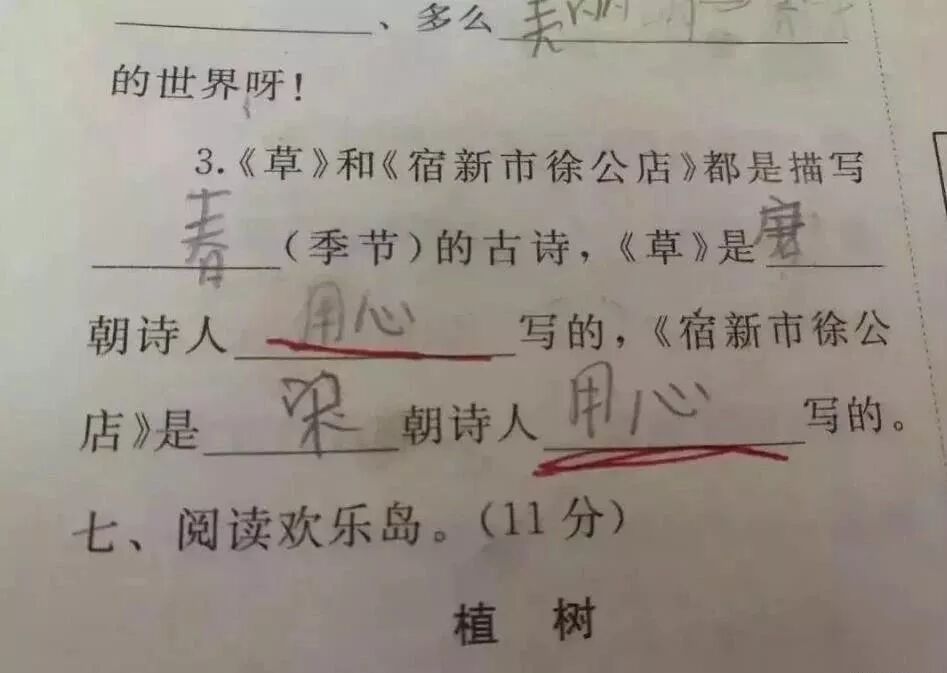 、多么美丽
的世界呀！
3.《草》和《宿新市徐公店》都是描写
春（季节）的古诗，《草》是唐
朝诗人用心写的，《宿新市徐公
店》是梁朝诗人用心写的。
七、阅读欢乐岛。（11分）
植 树